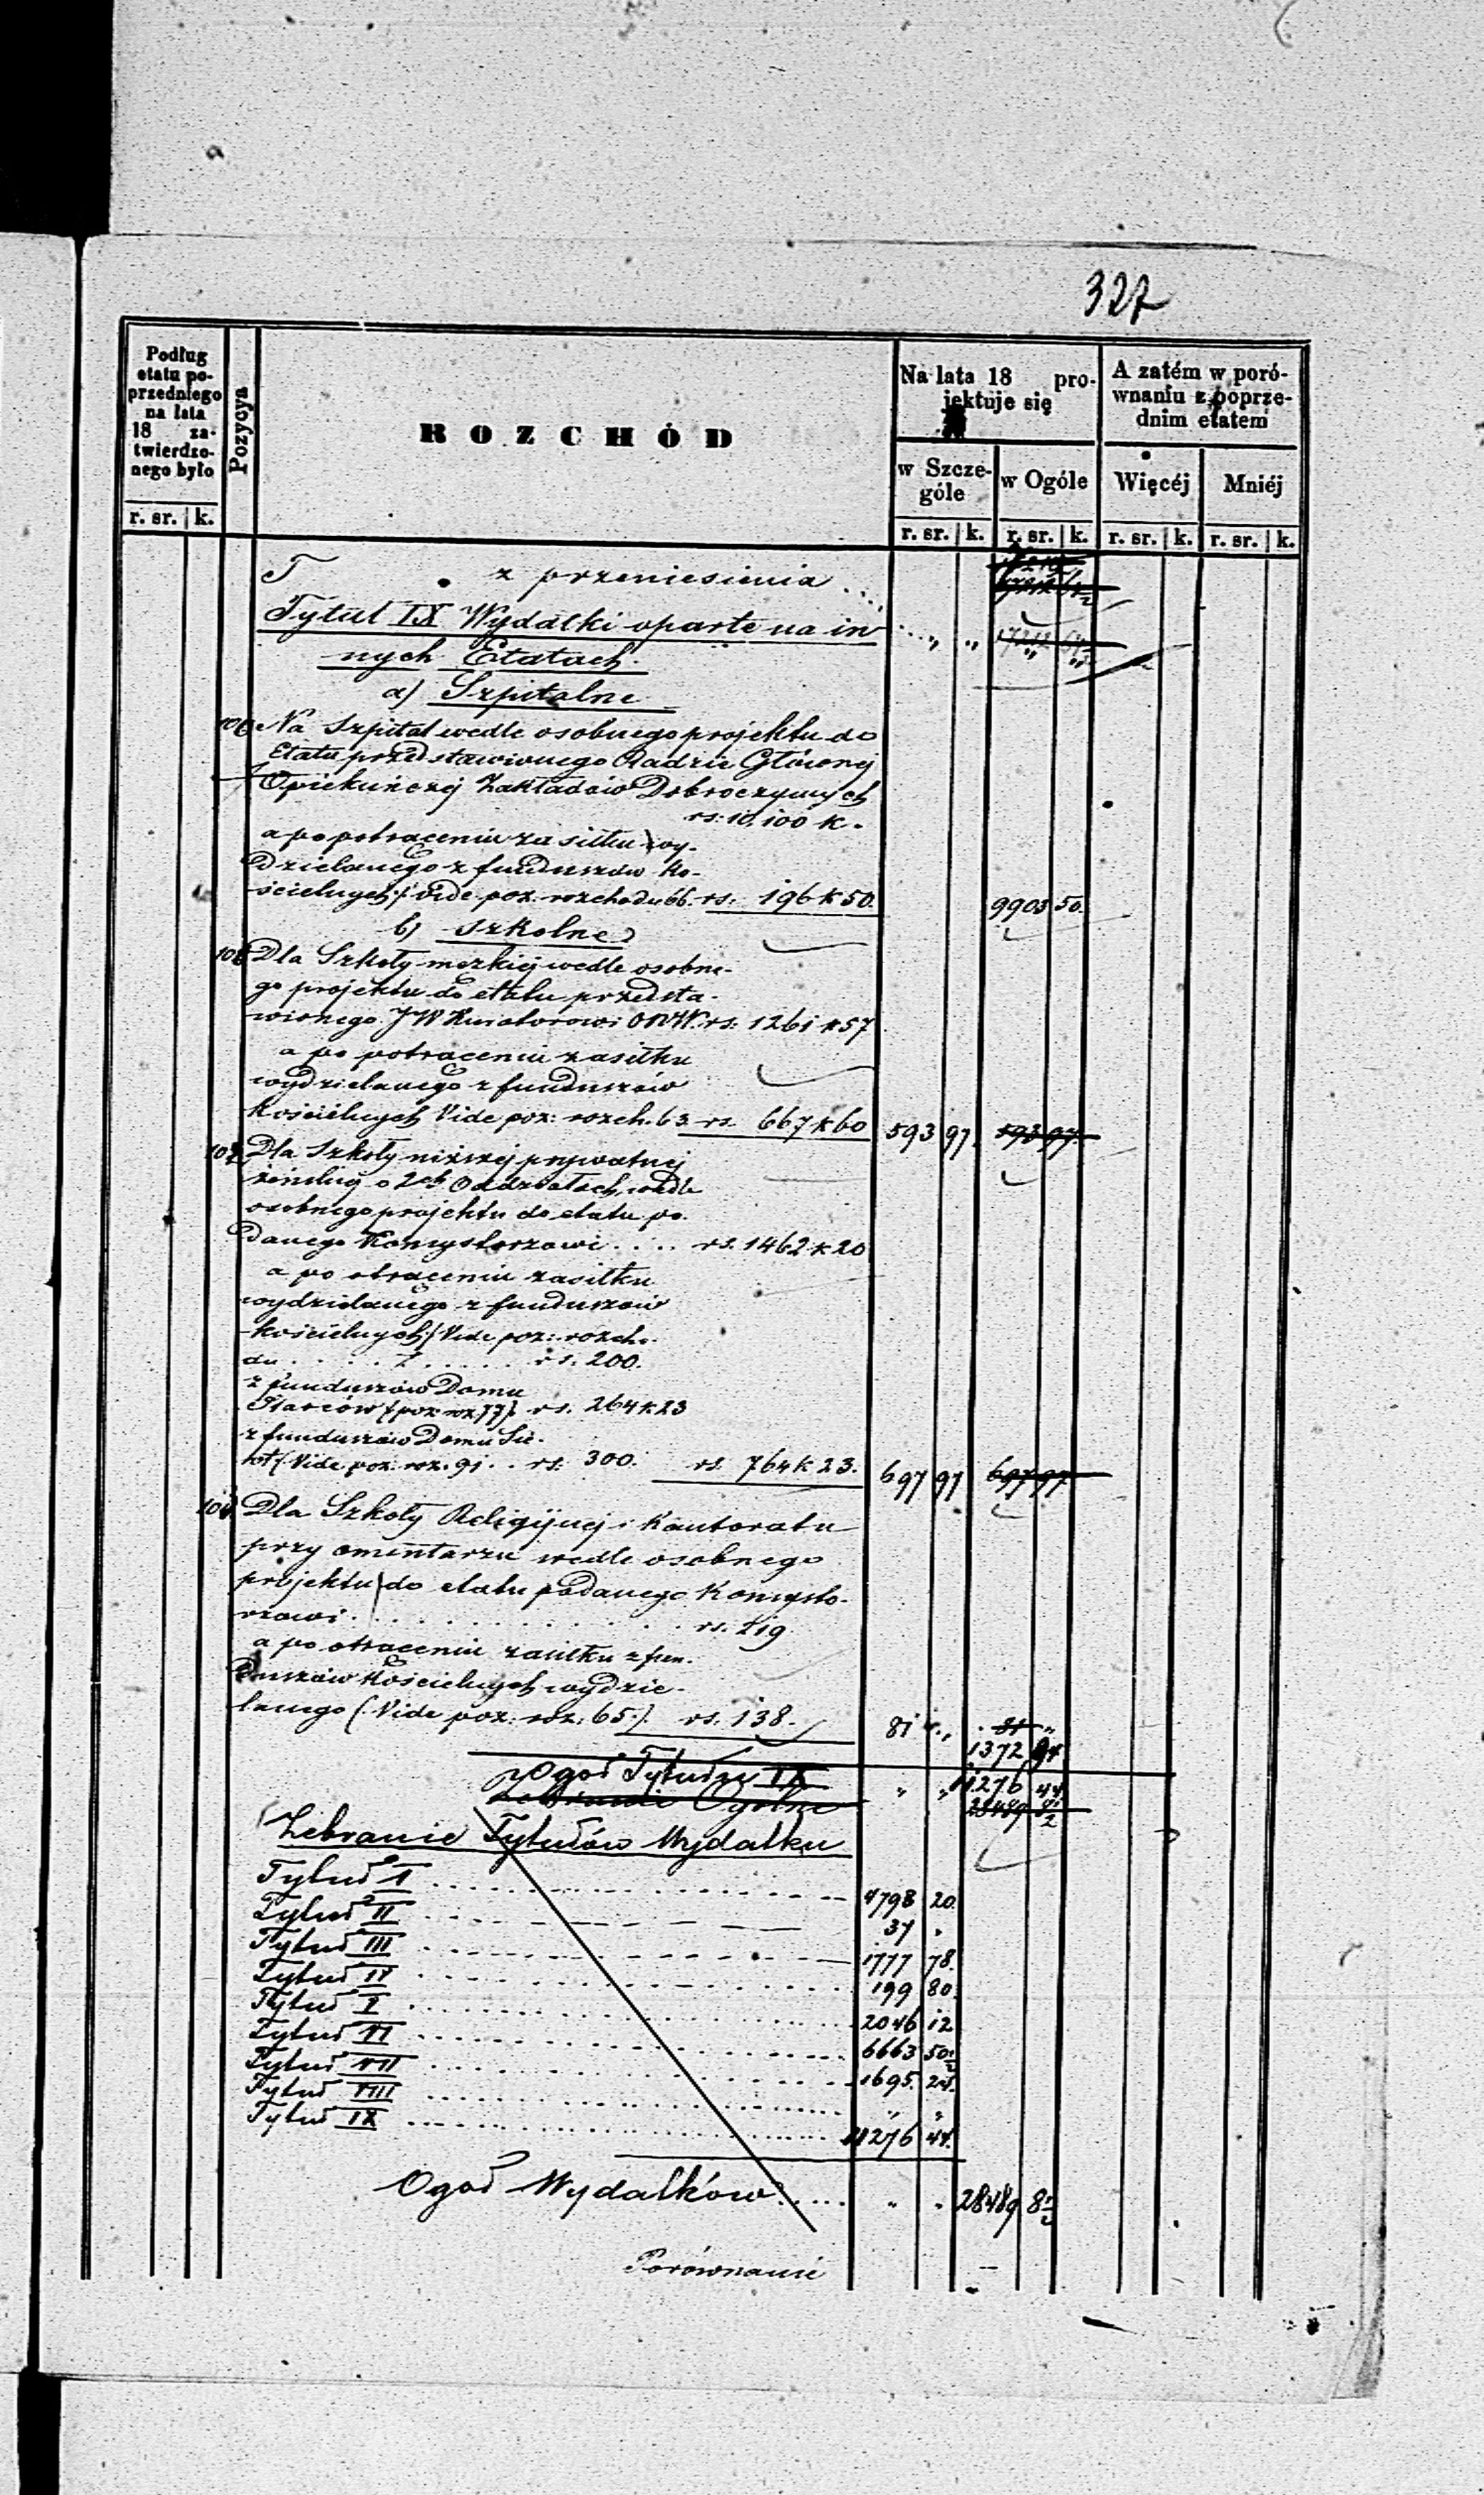 327
Podług
etatu po-
przedniego
na lata
18 za-
twierdzo-
nego było
Pozycya
ROZCHÓD
Na lata 18 pro-
jektuje się
A zatém w poró-
wnaniu z poprze-
dnim etatem
w Szcze-
góle
w Ogóle
Więcéj
Mniéj
r. sr. k.
r. sr. k.
r. sr. k.
r. sr. k.
r. sr. k.
z przeniesienia
Tytuł IX Wydatki oparte na in
nych Etatach
a) Szpitalne
Na Szpital wedle osobnego projektu do
Etatu przedstawionego Radzie Głównej
Opiekuńczej Zakładów Dobroczynnych
rs. 10,100 k.
a po potraceniu zasiłku wy-
dzielanego z funduszów Ko-
ścielnych / vide poz. rozchodu 66. rs. 196 k 50. 9903 50.
b) Szkolne
Dla Szkoły mezkiej wedle osobne-
go projektu do etatu przedsta-
wionego JW Kuratorowi ONW. rs. 1261 k 57
a po potraceniu zasiłku
wydzielanego z funduszów
kościelnych Vide poz: rozch. 63. rs. 667 k 60 593 97. 593 97.
Dla Szkoły niższej prywatnej
żeńskiej o 2ch Oddziałach, wedle
osobnego projektu do etatu po-
danego Komysłorzowi . . . . rs. 1462 k 20
a po otraceniu zasiłku
wydzielanego z funduszów
kościelnych / Vide poz: rozcho-
du . . . . . . . . . rs. 200.
z funduszów Domu
Starców (poz. roz. 77). rs. 264 k 23
z funduszów Domu Sie-
rot / Vide poz: roz. 91 . . rs. 300. rs. 764 k 23. 697 97 697 97
Dla Szkoły Religijnej i Kantoratu
przy cmentarzu wedle osobnego
projektu do etatu podanego Komysło-
rzowi . . . . . . . . . . . . rs. 219
a po otraceniu zasiłku z fun-
duszów Kościelnych wydzie-
lanego (Vide poz: roz: 65.). rs. 138. 81 „ 81 „
1372 94
Ogół Tytułu IX „ „ 11276 44
Ogólne 28489
Zebranie Tytułów Wydatku
Tytuł I 4798 20.
Tytuł II 37 „
Tytuł III 1777 78.
Tytuł IV 199 80.
Tytuł V 2046 12
Tytuł VI 6663 50½
Tytuł VII 1695. 24.
Tytuł VIII „ „
Tytuł IX 11276 44.
Ogół Wydatków . . . . . „ „ 28489 8½
Porównanie